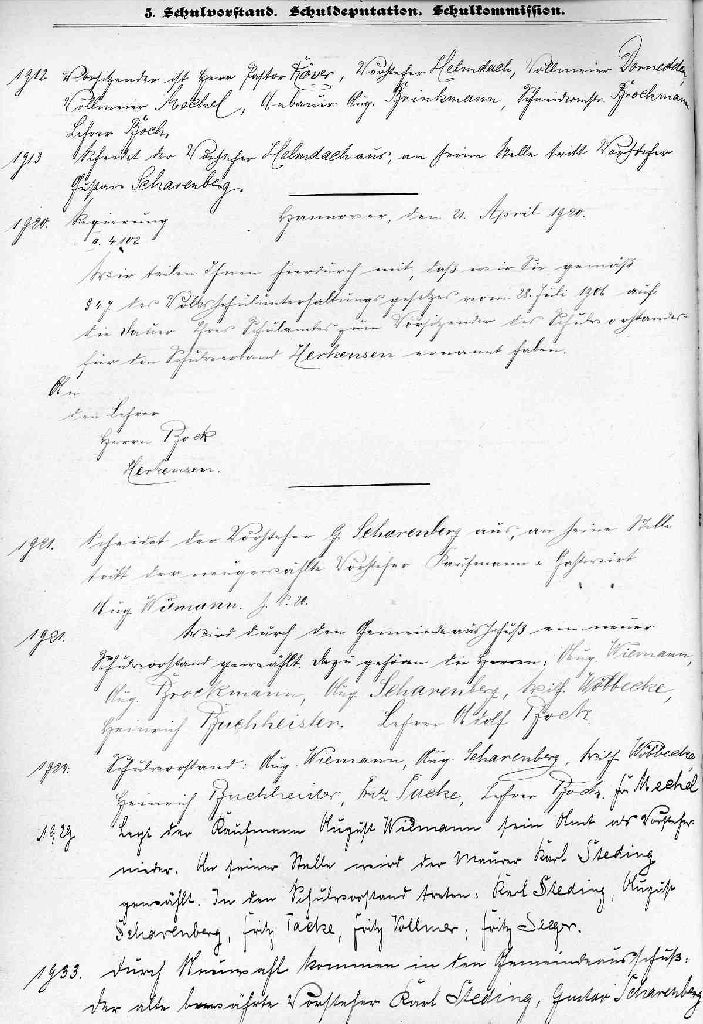 5. Schulvorstand. Schuldeputation. Schulkommission.
1912. Vorsitzender ist Herr Pastor Köver, Vorsteher Helmdach, Vollmeier
Vollmeier, Anbauer Aug. Brinkmann, Schneidermstr. Brockmann,
Lehrer Bock.
1913 scheidet der Vorsteher Helmdach aus, an seine Stelle tritt Vorsteher
Gustav Scharenberg.
1920. Regierung Hannover, den 21. April 1920.
a. 4102
Wir teilen Ihnen hierdurch mit, daß wir Sie gemäß
§ 47 des Volksschulunterhaltungsgesetzes vom 28. Juli 1906 auf
die Dauer Ihres Schulamtes zum Vorsitzender des Schulvorstandes
für den Schulverband Herkensen ernannt haben.
An
den Lehrer
Herrn Bock
Herkensen.
1921. Scheidet der Vorsteher G. Scharenberg aus, an seine Stelle
tritt der neugewählte Vorsteher Kaufmann u. Gastwirt
Aug. Wiemann
Wird durch den Gemeindeausschuß ein neuer
Schulvorstand gewählt. Dazu gehören die Herren: Aug. Wiemann,
Aug. Brockmann, Aug. Scharenberg, Wilh. Wölbecke,
Heinrich Buchheister. Lehrer Adolf Bock.
Schulvorstand: Aug. Wiemann, Aug. Scharenberg, Wilh. Wölbecke,
Heinrich Buchheister, Fritz Tacke, Lehrer Bock.
1929 Legt der Kaufmann August Wiemann sein Amt als Vorsteher
nieder. An seiner Stelle wird der Maurer Karl Steding
gewählt. In den Schulvorstand treten: Karl Steding, August
Scharenberg, Fritz Tacke, Fritz Vollmer, Fritz Seeger.
1933. Durch Neuwahl kommen in den Gemeindeausschuß:
der alte bewährte Vorsteher Karl Steding, Gustav Scharenberg